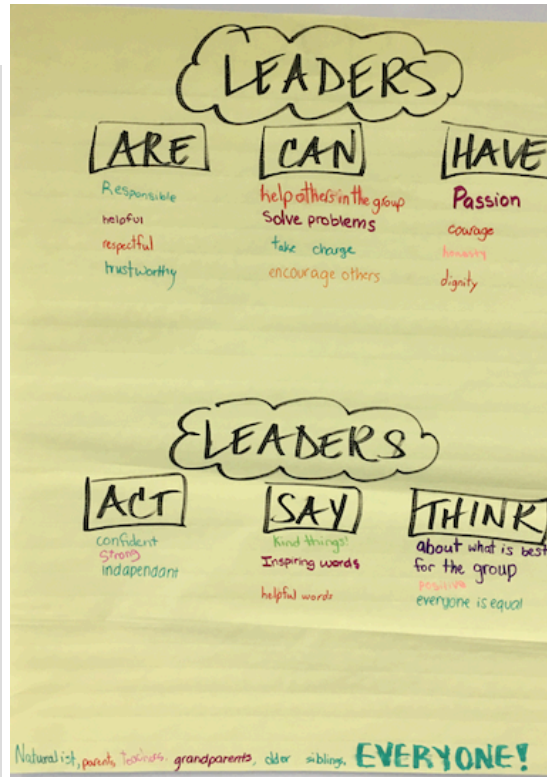 LEADERS
ARE
CAN
HAVE
Responsible
helpful
respectful
trustworthy
help others in the group
Solve problems
take charge
encourage others
Passion
courage
honesty
dignity
LEADERS
ACT
SAY
THINK
confident
Strong
indapendant
Kind things!
Inspiring words
helpful words
about what is best
for the group
positive
everyone is equal
Naturalist, parents, teachers, grandparents, older siblings, EVERYONE!